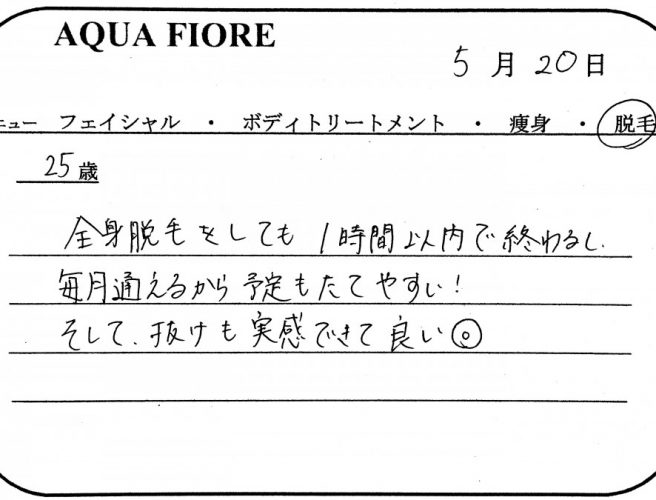 AQUA FIORE
5月20日
ニュー フェイシャル ・ ボディトリートメント ・ 痩身 ・ 脱毛
25歳
全身脱毛をしても1時間以内で終わるし、
毎月通えるから予定もたてやすい!
そして、抜けも実感できて良い◎